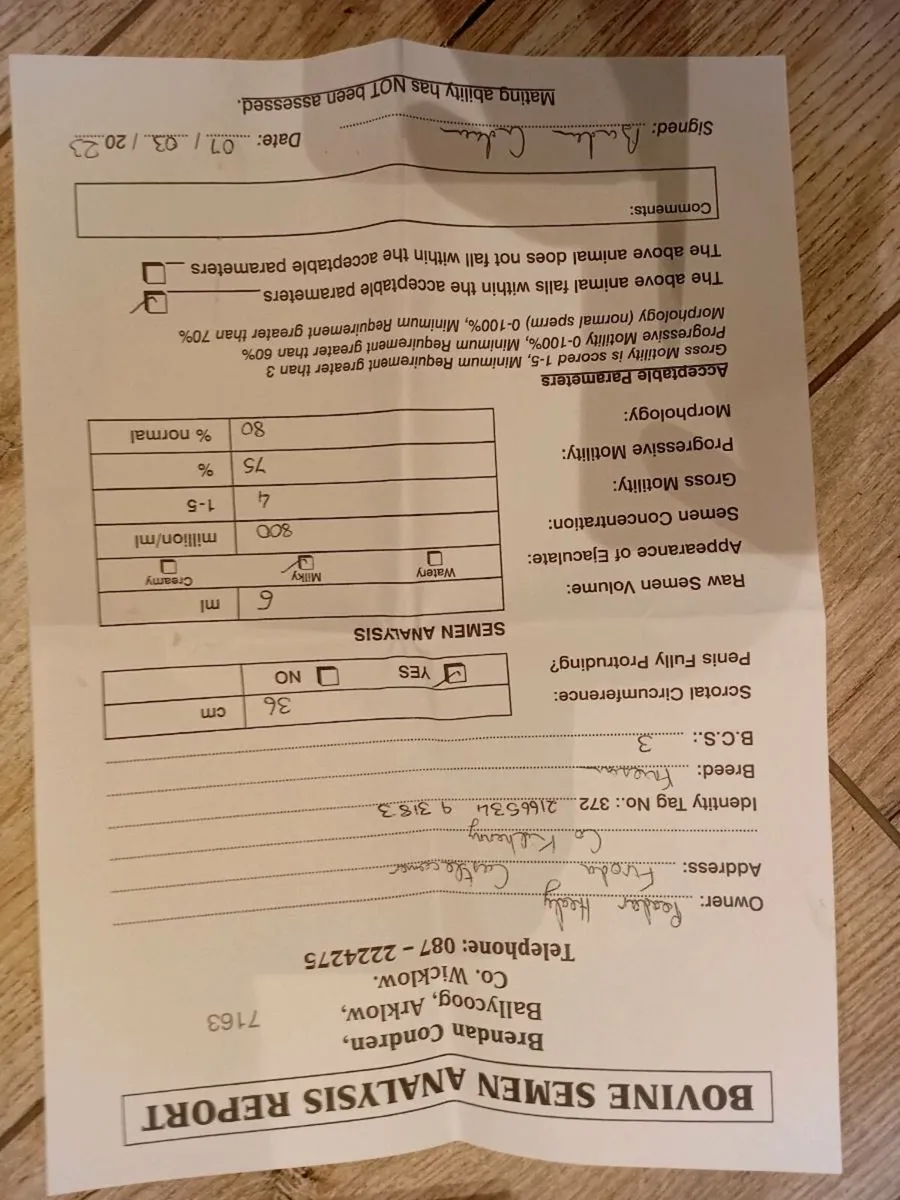 BOVINE SEMEN ANALYSIS REPORT
Brendan Condren,
Ballycoog, Arklow,
Co. Wicklow.
7163
Telephone: 087 – 2224275
Owner: Peader Healy
Address: Firoda Castlecomer
Co Kilkenny
Identity Tag No.: 372 2166534 9 3183
Breed: Friesian
B.C.S.: 3
Scrotal Circumference: 36 cm
Penis Fully Protruding? YES NO
SEMEN ANALYSIS
Raw Semen Volume: 6 ml
Appearance of Ejaculate: Watery Milky Creamy
Semen Concentration: 800 million/ml
Gross Motility: 4 1-5
Progressive Motility: 75 %
Morphology: 80 % normal
Acceptable Parameters
Gross Motility is scored 1-5, Minimum Requirement greater than 3
Progressive Motility 0-100%, Minimum Requirement greater than 60%
Morphology (normal sperm) 0-100%, Minimum Requirement greater than 70%
The above animal falls within the acceptable parameters
The above animal does not fall within the acceptable parameters
Comments:
Signed: Date: 07 / 03 / 2023
Mating ability has NOT been assessed.